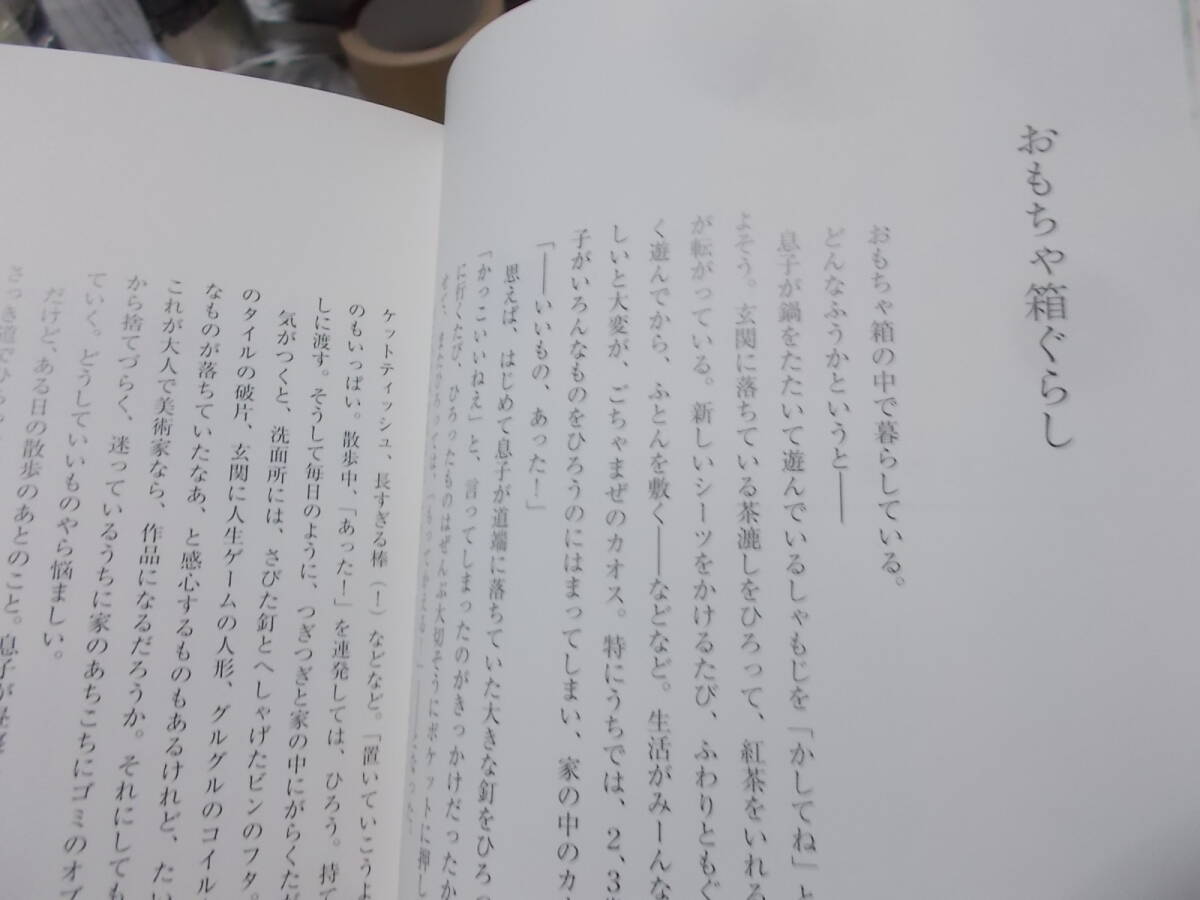 おもちゃ箱ぐらし
おもちゃ箱の中で暮らしている。
どんなふうかというと――
息子が鍋をたたいて遊んでいるしゃもじを「かしてね」と
よそう。玄関に落ちている茶漉しをひろって、紅茶をいれる
が転がっている。新しいシーツをかけるたび、ふわりともぐ
く遊んでから、ふとんを敷く――などなど。生活がみーんな
しいと大変が、ごちゃまぜのカオス。特にうちでは、2、3
子がいろんなものをひろうのにはまってしまい、家の中のカ
「――いいもの、あった！」
思えば、はじめて息子が道端に落ちていた大きな釘をひろっ
「かっこいいねえ」と、言ってしまったのがきっかけだったか
に行くたび、ひろったものはぜんぶ大切そうにポケットに押し
ケットティッシュ、長すぎる棒（！）などなど。「置いていこうよ
のもいっぱい。散歩中、「あった！」を連発しては、ひろう。持て
しに渡す。そうして毎日のように、つぎつぎと家の中にがらくたが
気がつくと、洗面所には、さびた釘とへしゃげたビンのフタ。
のタイルの破片、玄関に人生ゲームの人形、グルグルのコイル
なものが落ちていたなあ、と感心するものもあるけれど、たい
これが大人で美術家なら、作品になるだろうか。それにしても
から捨てづらく、迷っているうちに家のあちこちにゴミのオブ
ていく。どうしていいものやら悩ましい。
だけど、ある日の散歩のあとのこと。息子が
さっき道でひろ